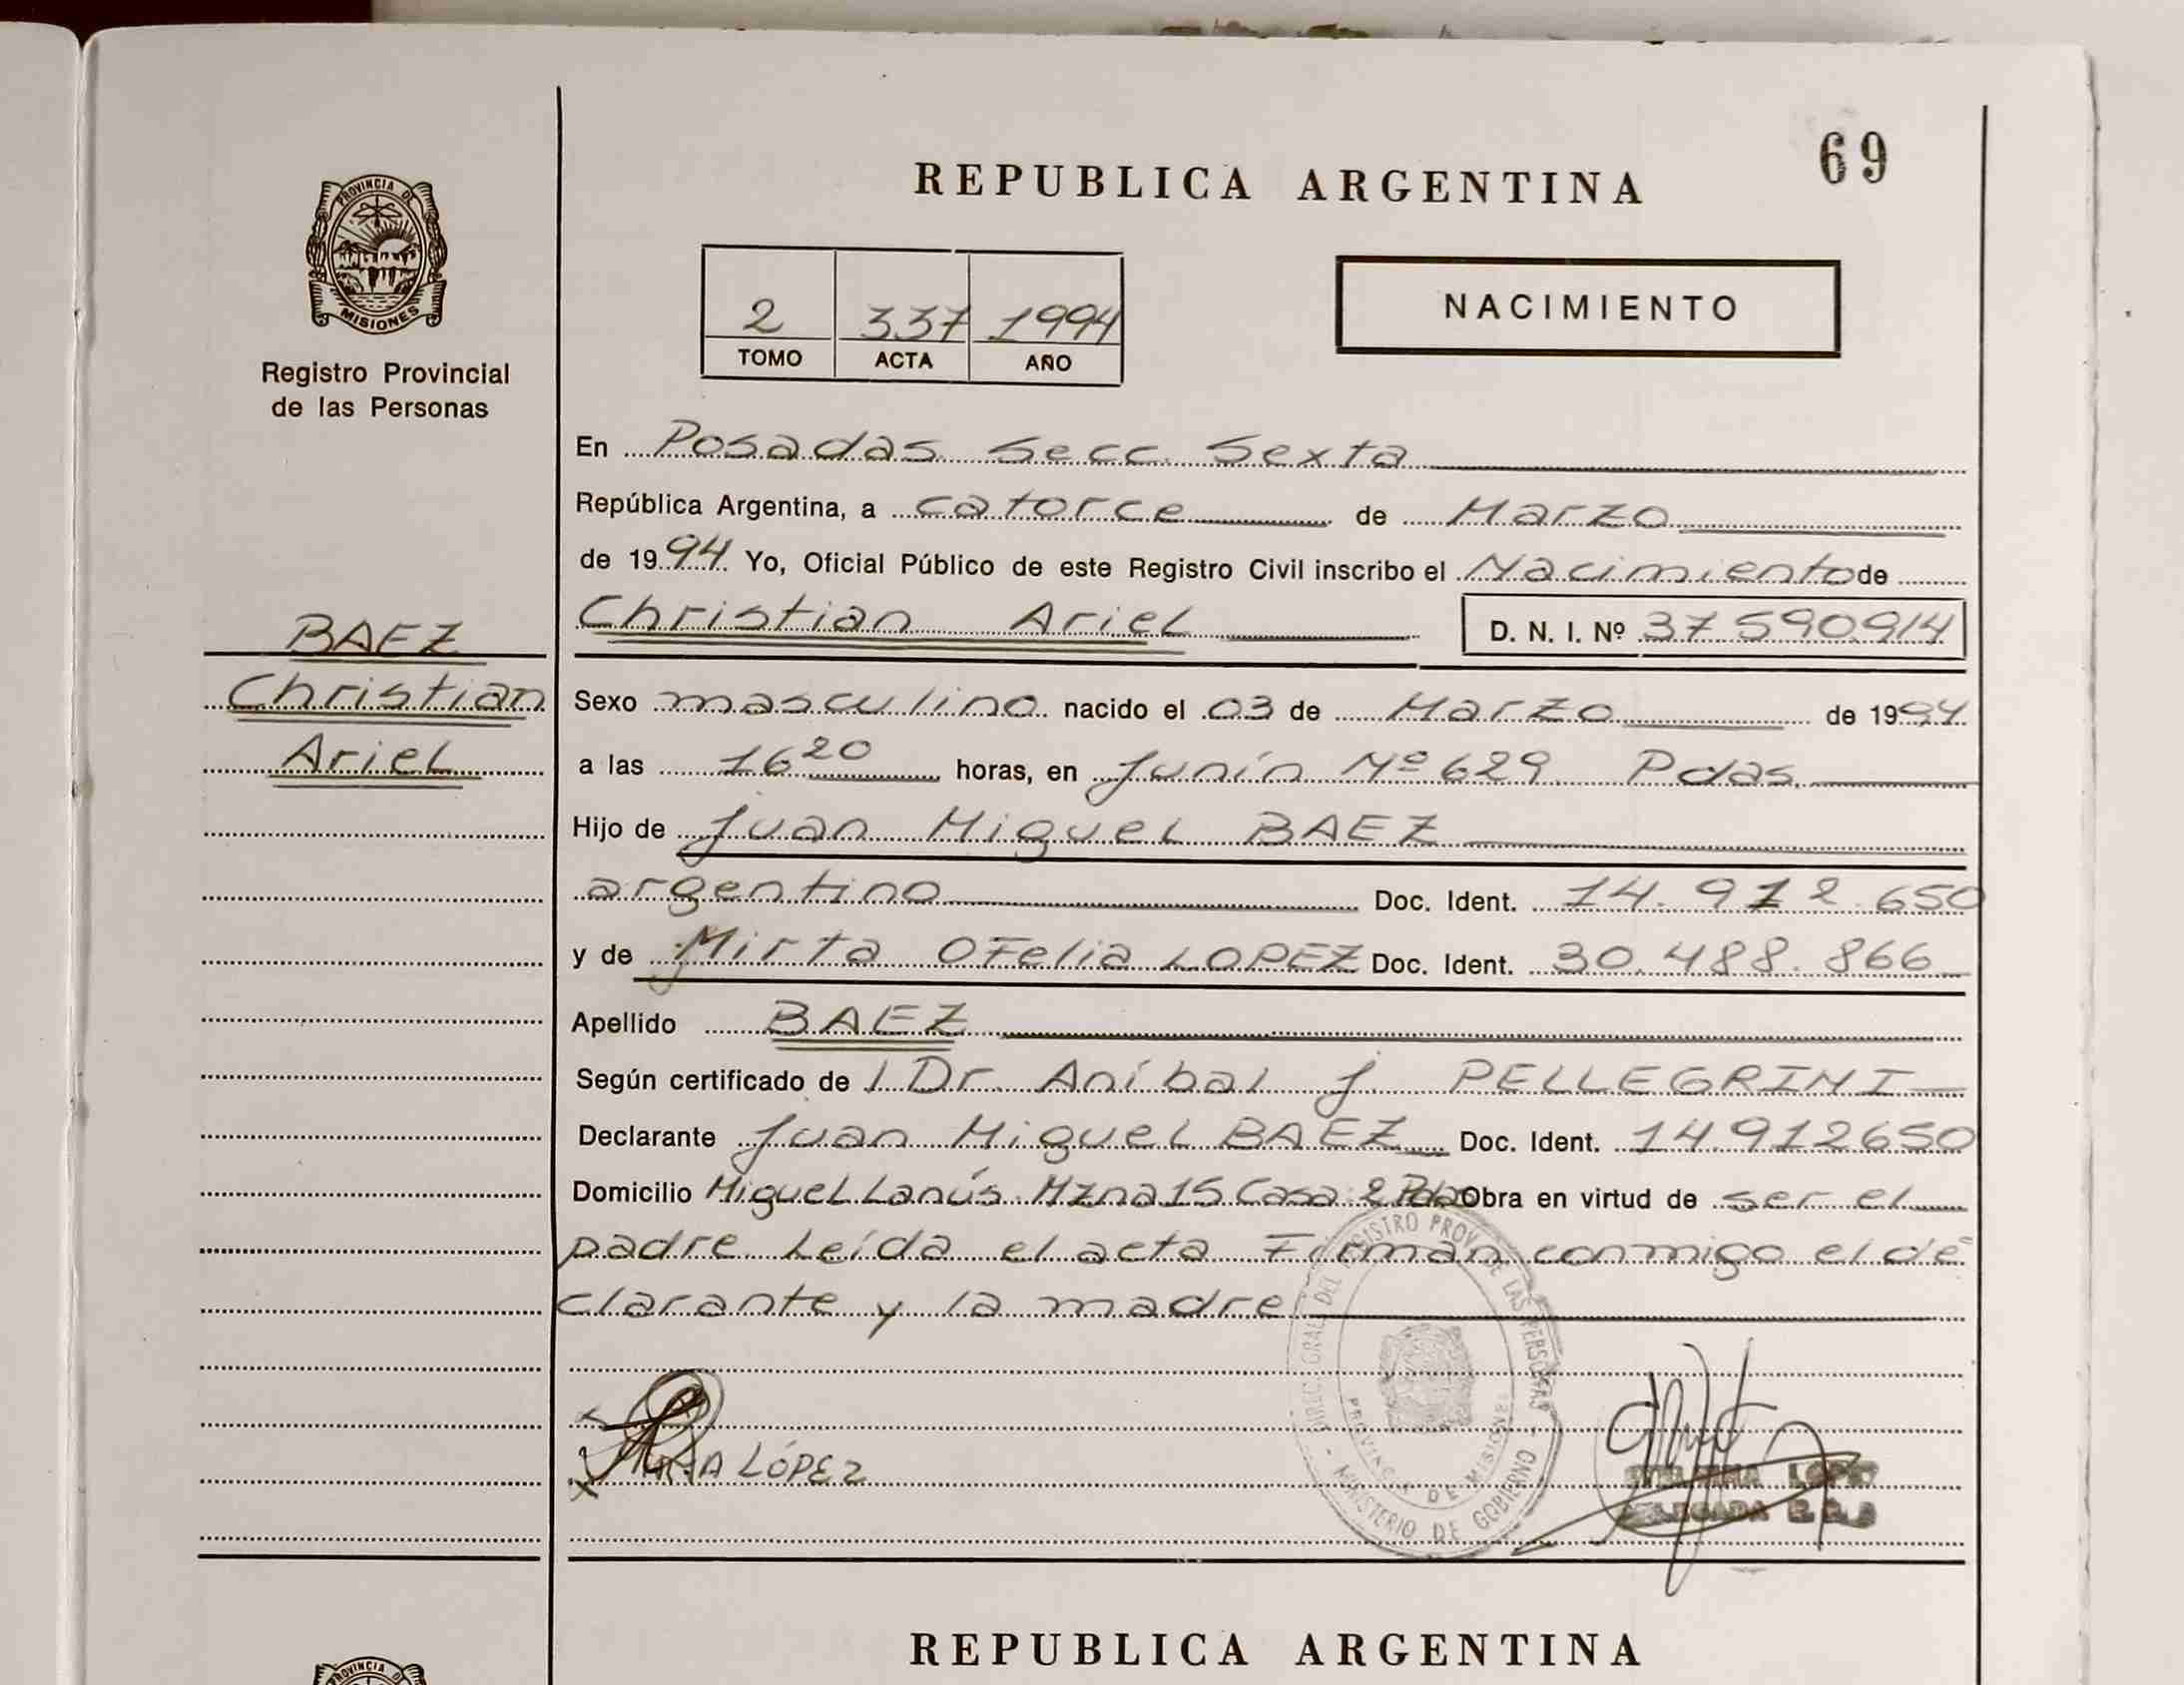 69
REPUBLICA ARGENTINA
PROVINCIA DE
MISIONES
Registro Provincial
de las Personas
2 337 1994
TOMO ACTA AÑO
NACIMIENTO
En Posadas Secc. Sexta
República Argentina, a catorce de Marzo
de 1994 Yo, Oficial Público de este Registro Civil inscribo el Nacimiento de
Christian Ariel D. N. I. Nº 37590914
BAEZ
Christian
Ariel
Sexo masculino nacido el 03 de Marzo de 1994
a las 16 20 horas, en Junín Nº 629 Pdas.
Hijo de Juan Miguel BAEZ
argentino Doc. Ident. 14.912.650
y de Mirta OFelia LOPEZ Doc. Ident. 30.488.866
Apellido BAEZ
Según certificado de l Dr. Aníbal J. PELLEGRINI
Declarante Juan Miguel BAEZ Doc. Ident. 14912650
Domicilio Miguel Lanús Mzna 15 Casa 2 Pdas Obra en virtud de ser el
padre Leída el acta Firman conmigo el de
clarante y la madre
DIREC. GRAL. DEL REGISTRO PROV. DE LAS PERSONAS
PROVINCIA DE MISIONES
- MINISTERIO DE GOBIERNO -
LÓPEZ
LOPEZ
REPUBLICA ARGENTINA
PROVINCIA